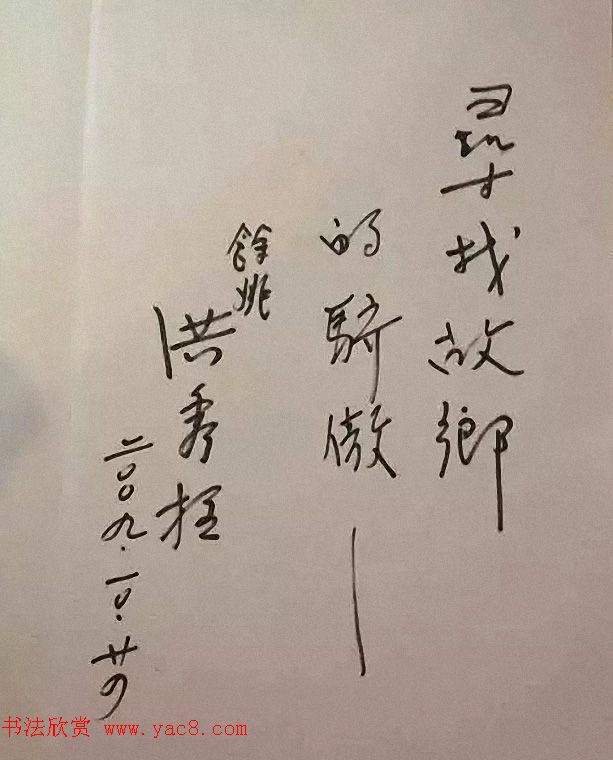 尋找故鄉
的驕傲—
餘姚
洪秀柱
二〇〇九.一〇.廿四
书法欣赏 www.yac8.com